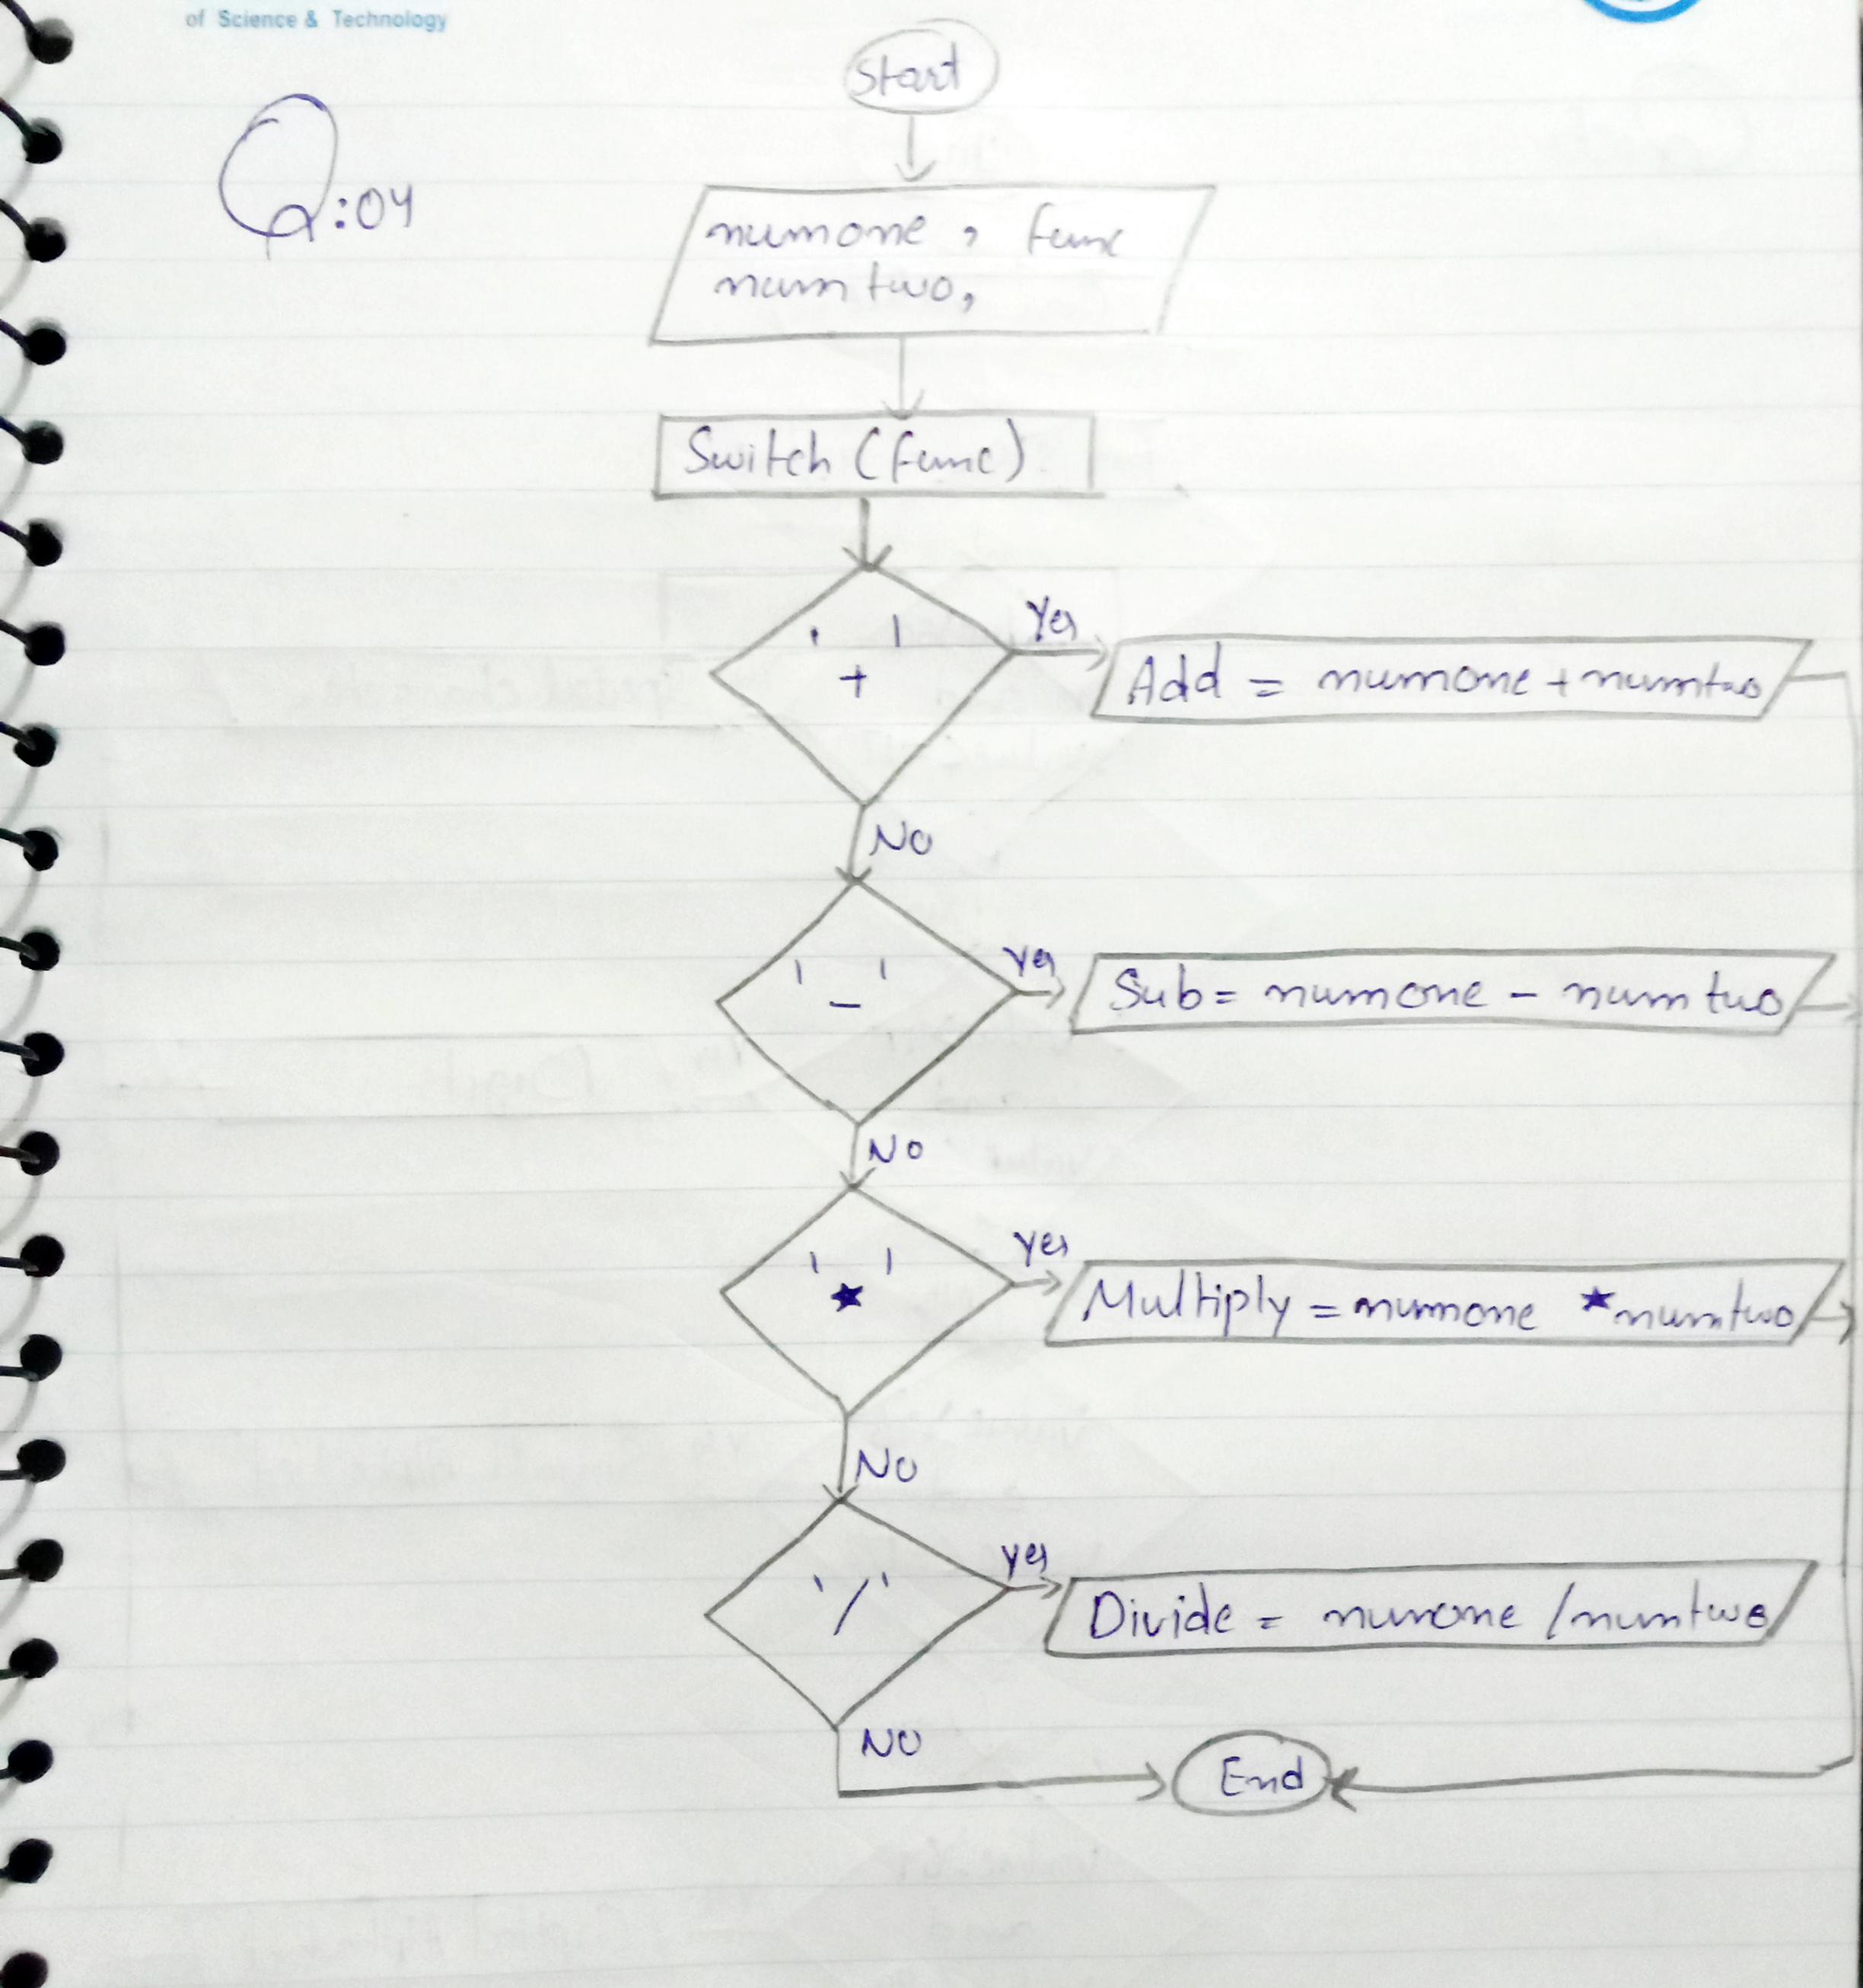 of Science & Technology
Start
Q:04
numone, func
numtwo,
Switch (func)
'+'
Yes
Add = numone + numtwo
No
'-'
Yes
Sub = numone - numtwo
No
'*'
Yes
Multiply = numone * numtwo
No
'/'
Yes
Divide = numone / numtwo
NO
End